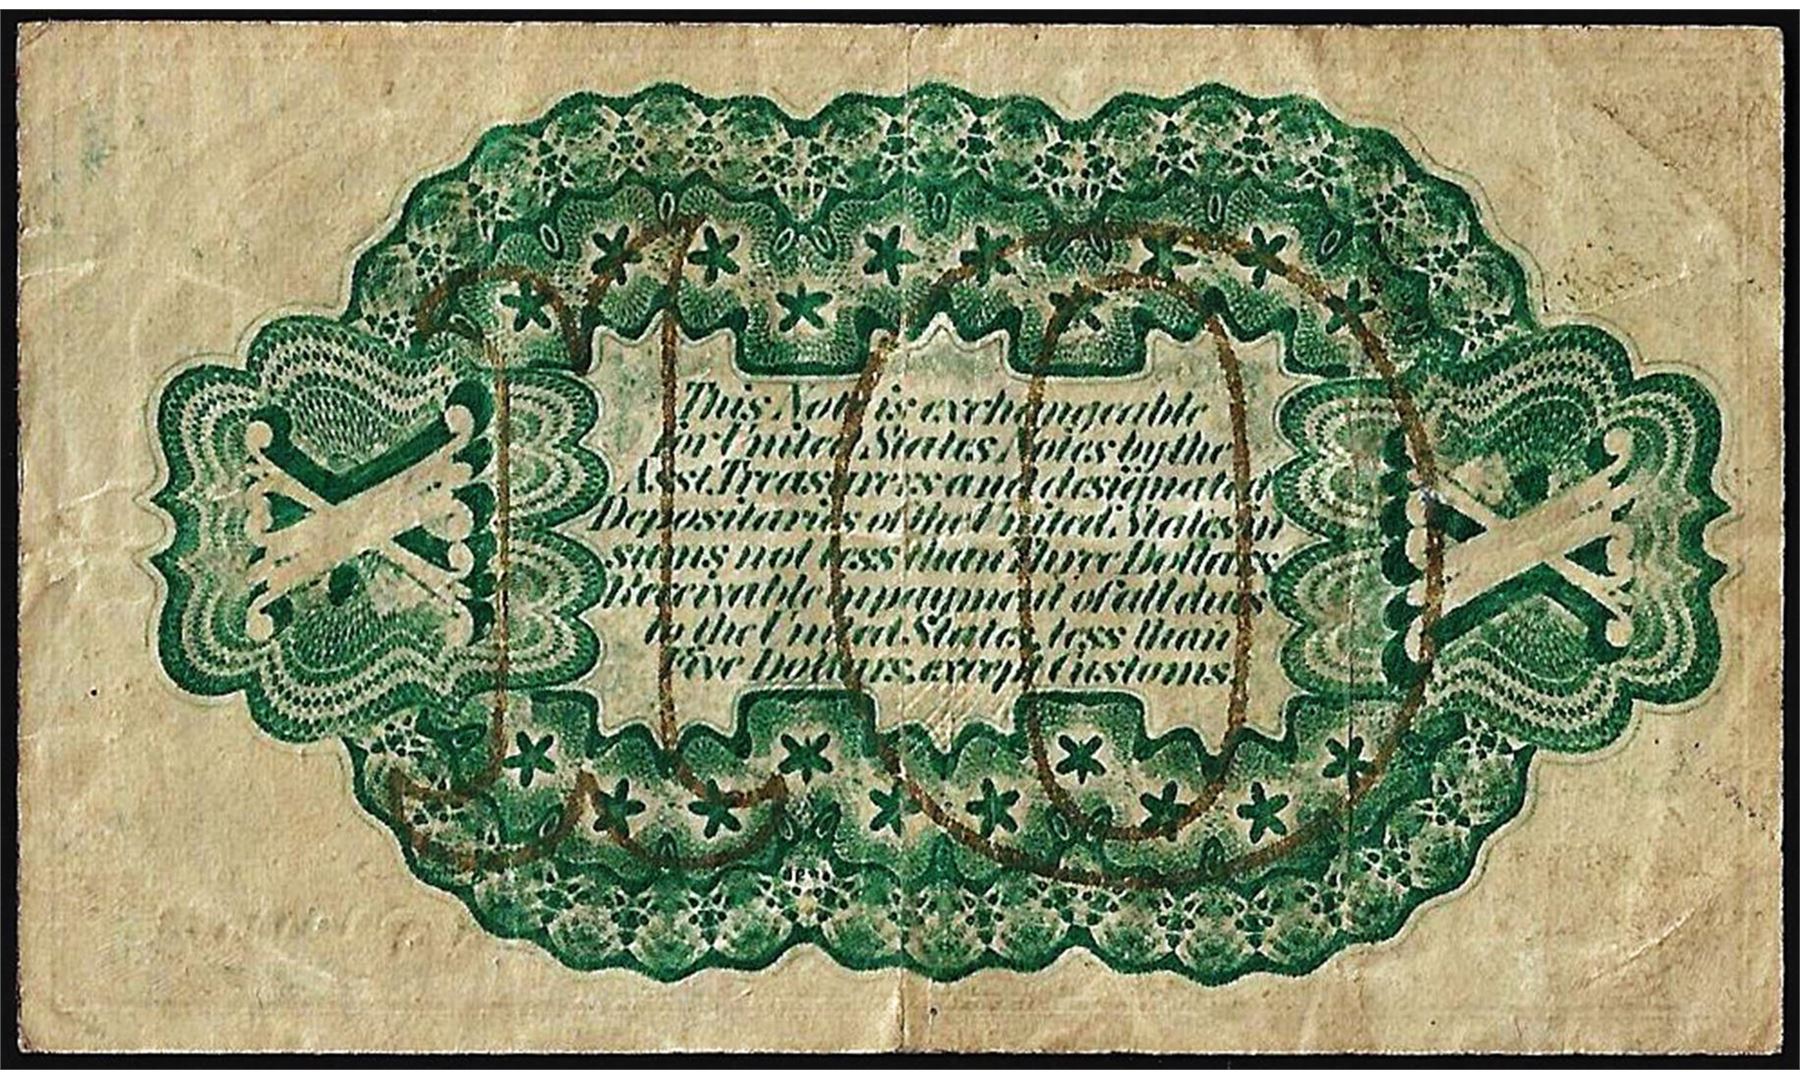 10
This Note is exchangeable
for United States Notes by the
Asst. Treasurers and designated
Depositaries of the United States in
sums not less than Three Dollars.
Receivable in payment of all dues
to the United States, less than
Five Dollars, except Customs.
X X